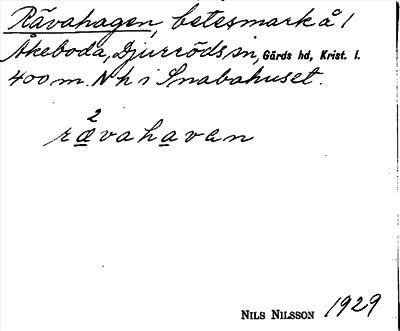 Rävahagen, betesmark å 1
Åkeboda, Djurröds sn, Gärds hd, Krist. l.
400 m. N h i Snabahuset.
2
rävahavan
NILS NILSSON 1929